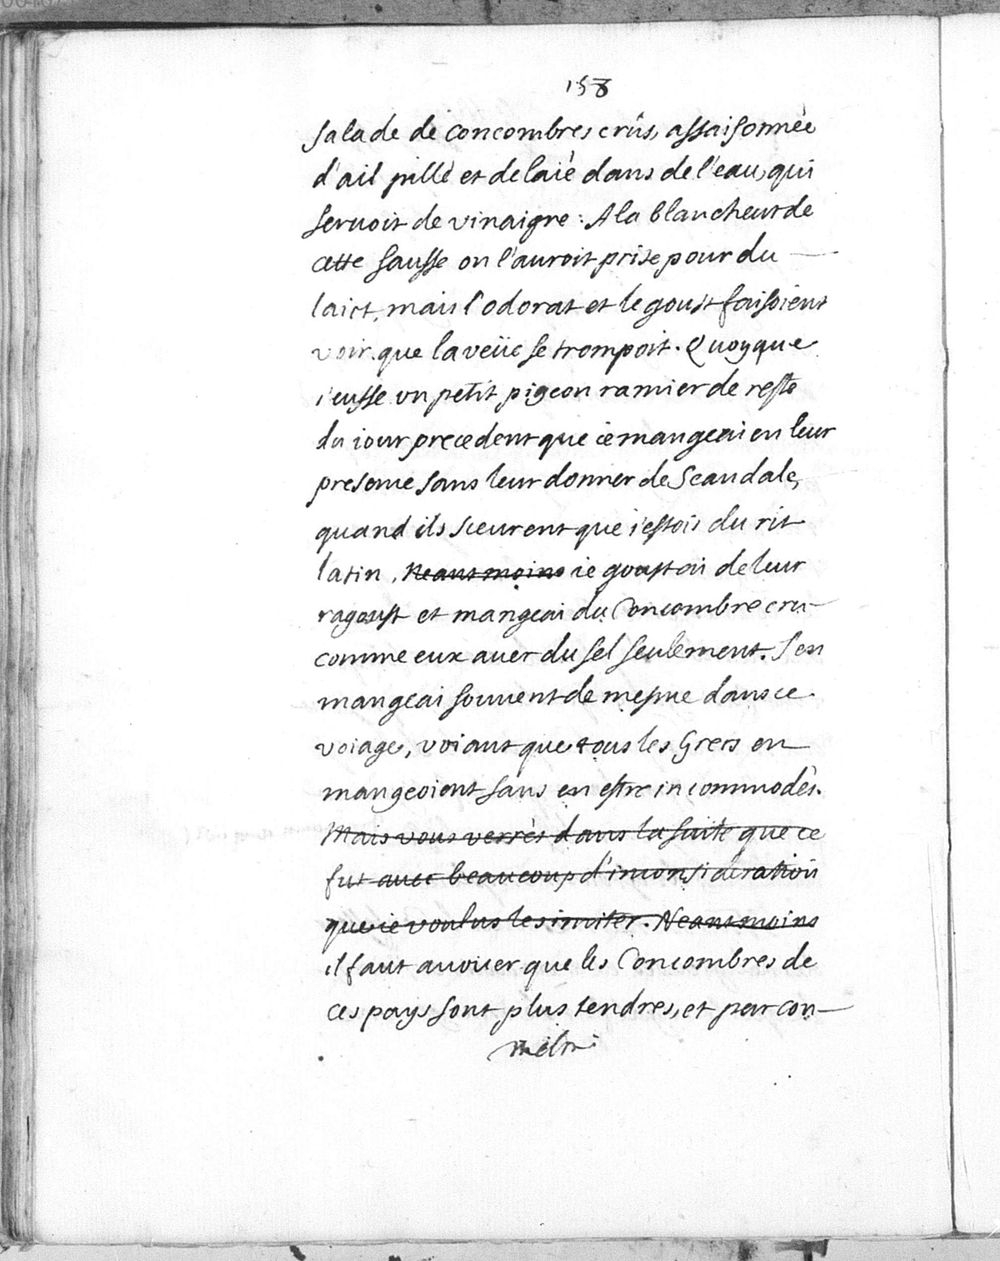 158
salade de concombres crûs, assaisonnée
d'ail pillé et delaié dans de l'eau, qui
servoit de vinaigre : A la blancheur de
cette sausse on l'auroit prise pour du
laict, mais l'odorat et le goust faisoient
voir que la veüe se trompoit. Quoyque
j'eusse un petit pigeon ramier de reste
du iour precedent que ie mangeai en leur
presence sans leur donner de Scandale,
quand ils sceurent que i'estois du rit
latin, Neantmoins ie goustai de leur
ragoust et mangeai du Concombre cru
comme eux avec du sel seulement. J'en
mangeai souvent de mesme dans ce
voiage, voiant que tous les Grecs en
mangeoient sans en estre incommodés.
Mais vous verrés dans la suite que ce
fut avec beaucoup d'inconsideration
que ie voulus les imiter. Neantmoins
il faut avouer que les Concombres de
ces pays sont plus tendres, et par con-